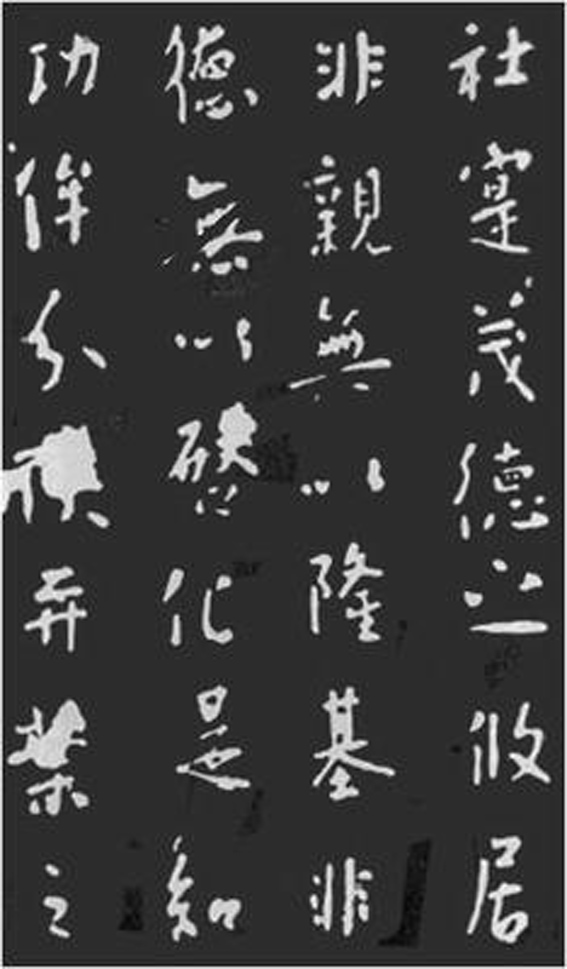 社寔茂德之攸居
非親無以隆基非
德無以啓化是知
功侔分陝弈葉之